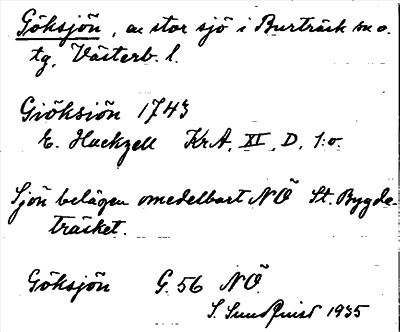 Göksjön, en stor sjö i Burträsk sn o.
tg, Västerb. l.
Giöksiön 1743
E. Hackzell KrA, XI, D, 1:o.
Sjön belägen omedelbart NÖ St. Bygde-
träsket.
Göksjön G. 56 NÖ.
S. Sundquist 1935